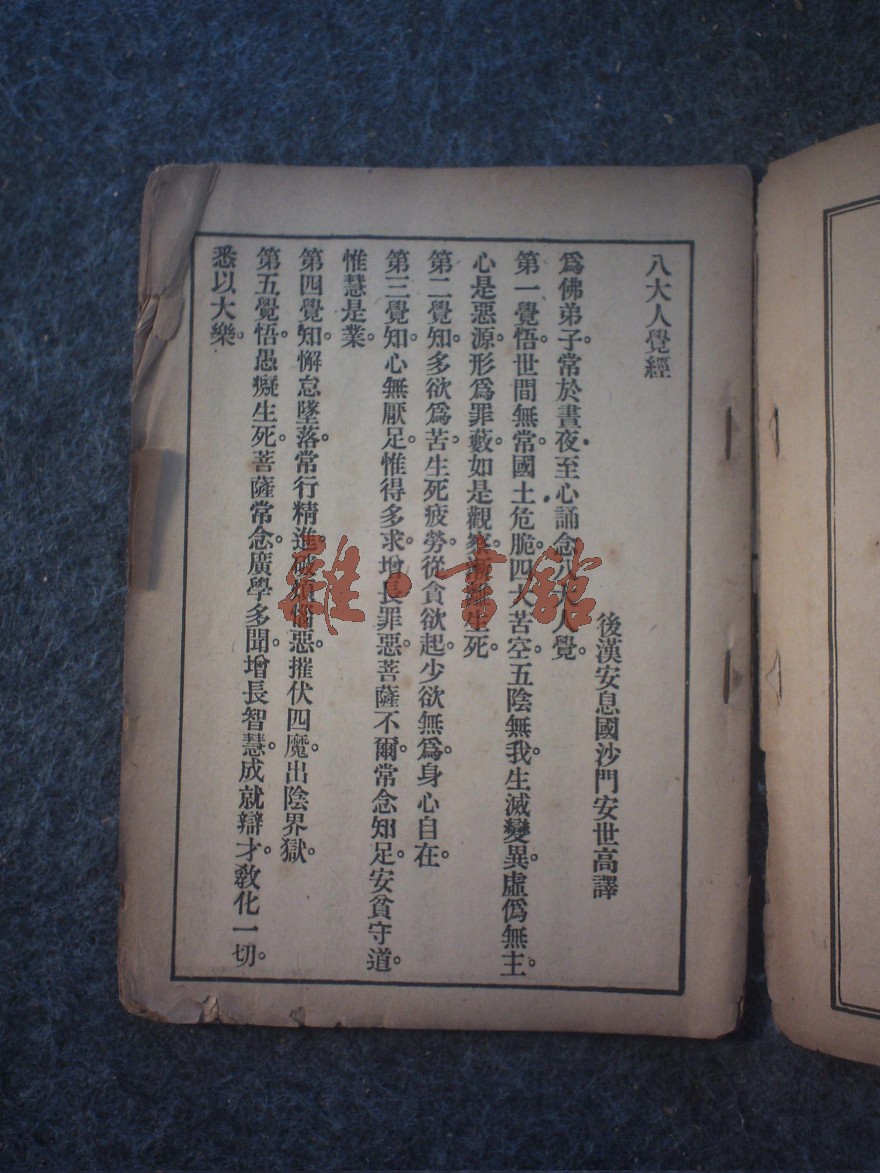 八大人覺經
後漢安息國沙門安世高譯
爲佛弟子。常於晝夜。至心誦念。八大人覺。
第一覺悟。世間無常。國土危脆。四大苦空。五陰無我。生滅變異。虛僞無主。
心是惡源。形爲罪藪。如是觀察。漸離生死。
第二覺知。多欲爲苦。生死疲勞。從貪欲起。少欲無爲。身心自在。
第三覺知。心無厭足。惟得多求。增長罪惡。菩薩不爾。常念知足。安貧守道。
惟慧是業。
第四覺知。懈怠墜落。常行精進。破煩惱惡。摧伏四魔。出陰界獄。
第五覺悟。愚癡生死。菩薩常念。廣學多聞。增長智慧。成就辯才。敎化一切。
悉以大樂。
雜·書館